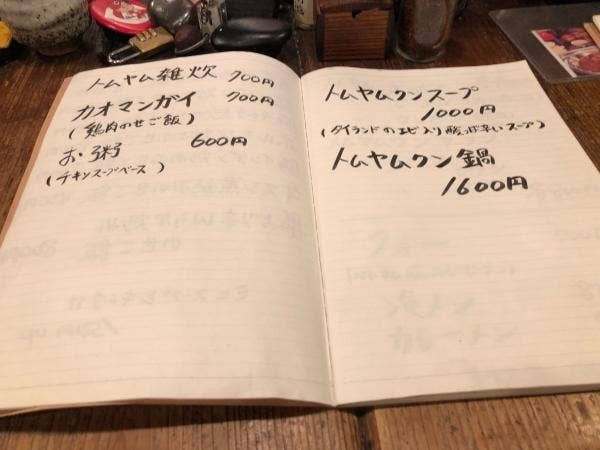 トムヤム雑炊 700円
カオマンガイ 700円
(鶏肉のせご飯)
お粥 600円
(チキンスープベース)
トムヤムクンスープ
1000円
(タイランドのエビ入り酸っぱ辛いスープ)
トムヤムクン鍋
1600円